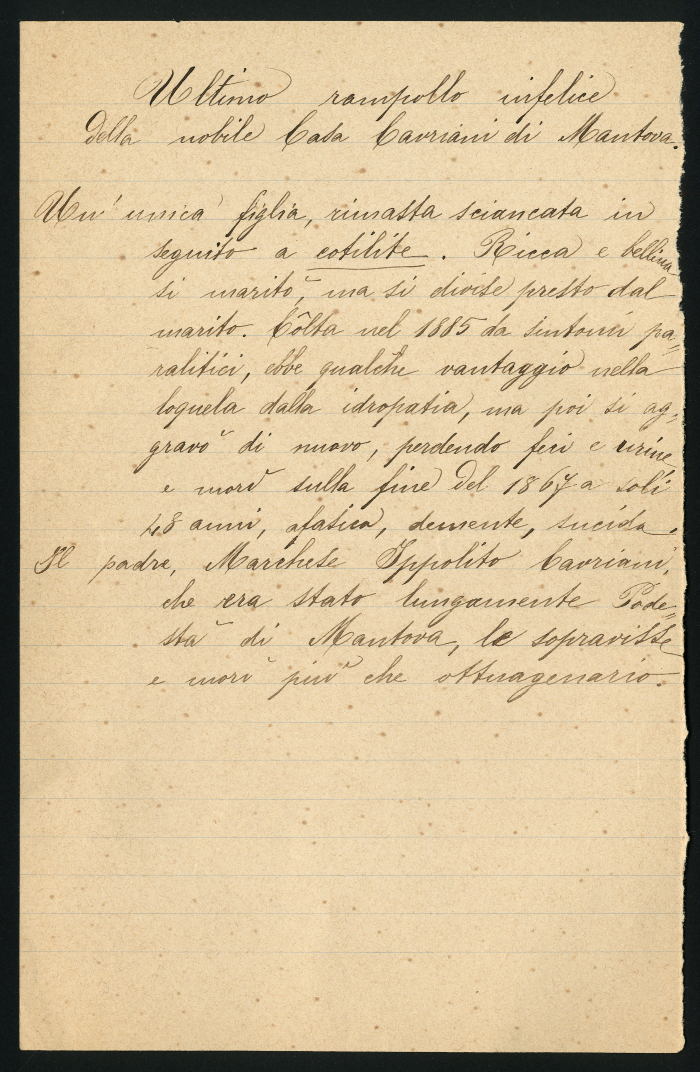 Ultimo rampollo infelice
della nobile Casa Cavriani di Mantova.
Un' unica figlia, rimasta sciancata in
seguito a cotilite. Ricca e bellina
si maritò, ma si divise presto dal
marito. Côlta nel 1885 da sintomi pa=
ralitici, ebbe qualche vantaggio nella
loquela dalla idropatia, ma poi si ag=
gravò di nuovo, perdendo feci e urine,
e morì sulla fine del 1867 a soli
48 anni, afasica, demente, sucida.
Il padre, Marchese Ippolito Cavriani,
che era stato lungamente Pode=
stà di Mantova, le sopravisse
e morì più che ottuagenario.